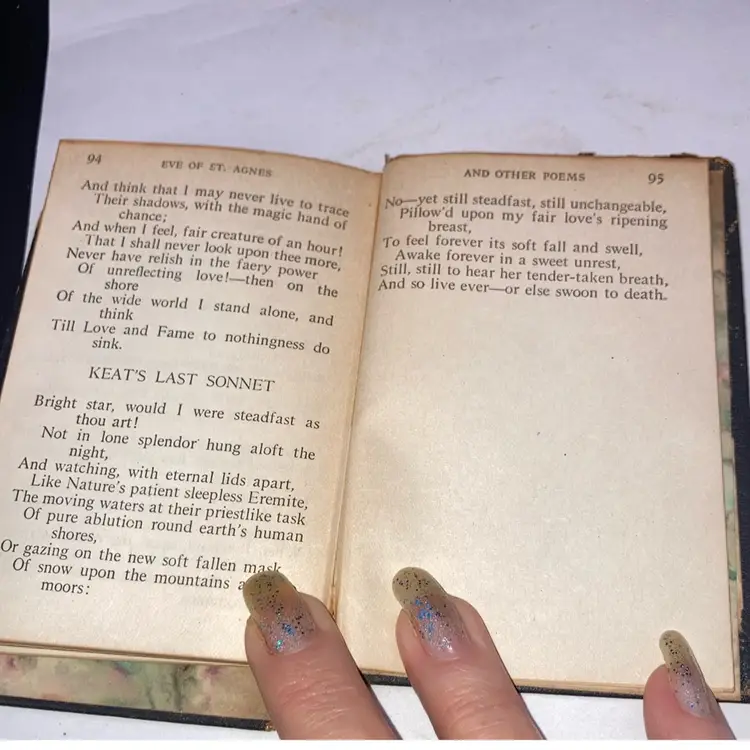 94
EVE OF ST. AGNES
And think that I may never live to trace
Their shadows, with the magic hand of
chance;
And when I feel, fair creature of an hour!
That I shall never look upon thee more,
Never have relish in the faery power
Of unreflecting love!—then on the
shore
Of the wide world I stand alone, and
think
Till Love and Fame to nothingness do
sink.
KEAT'S LAST SONNET
Bright star, would I were steadfast as
thou art!
Not in lone splendor hung aloft the
night,
And watching, with eternal lids apart,
Like Nature's patient sleepless Eremite,
The moving waters at their priestlike task
Of pure ablution round earth's human
shores,
Or gazing on the new soft fallen mask
Of snow upon the mountains
moors:
AND OTHER POEMS
95
No—yet still steadfast, still unchangeable,
Pillow'd upon my fair love's ripening
breast,
To feel forever its soft fall and swell,
Awake forever in a sweet unrest,
Still, still to hear her tender-taken breath,
And so live ever—or else swoon to death.